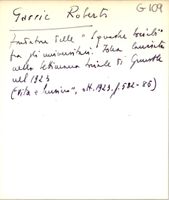 Garric Robert G 109
fondatore delle "Squadre Sociali"
fra gli universitari. Tenne
alla Settimana Sociale di Grenoble
nel 1923
("Vita e Pensiero", ott. 1923, p. 582-86)